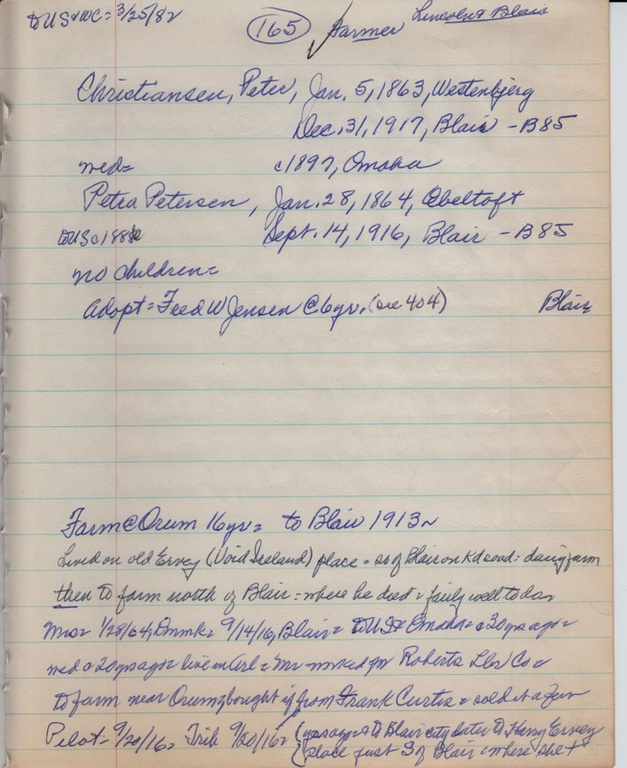 to US & WC = 3/25/82
165 ✓ Farmer Lincoln & Blair
Christiansen, Peter, Jan. 5, 1863, Westenbjerg
Dec. 31, 1917, Blair - B85
med= c1897, Omaha
Petra Petersen, Jan. 28, 1864, Ebeltoft
to US c1888 Sept. 14, 1916, Blair - B85
no children=
adopt = Fred W Jensen @ 6yr. (see 404) Blair
Farm @ Orum 16yr = to Blair 1913
Lived on old Ervey (Void Ireland) place = so of Blair on Kd road = dairy farm
then to farm north of Blair = where he died = fairly well to do
Mrs = 1/28/64, Dnmk = 9/14/16, Blair = to US & Omaha = c30 yrs ago =
med c20 yrs ago = live in Arl = Mr worked for Roberts Lbr Co =
to farm near Orum, bought it from Frank Curtis = sold it a few
Pilot = 9/20/16 = Trib 9/20/16 = (yrs ago & to Blair city later to Henry Ervey
(place just S of Blair = where she +